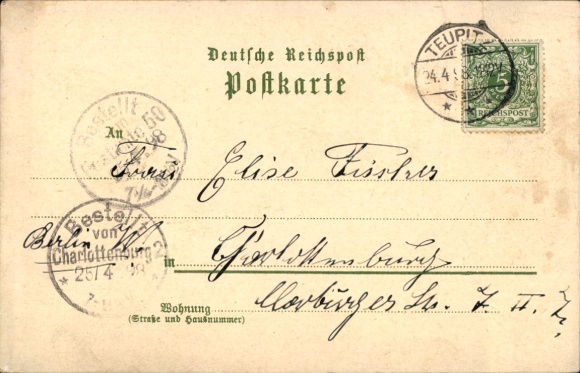 Deutsche Reichspost
Postkarte
TEUPITZ
24.4.98
5
REICHSPOST
Bestellt
50
98
An
Frau Elise Fischer
Bestellt
von
Charlottenburg 2
25/4 98
Berlin W.
in Charlottenburg
Wohnung
(Straße und Hausnummer)
Marburger Str. 7. II.